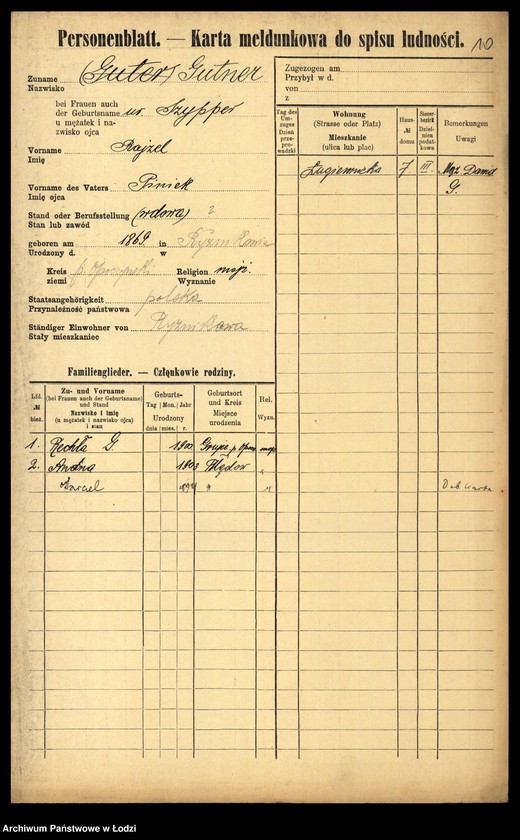 Personenblatt. — Karta meldunkowa do spisu ludności.
10
Zuname (Guter) Gutner
Nazwisko
bei Frauen auch
der Geburtsname ur. Szypper
u mężatek i na-
zwisko ojca
Vorname Rajzel
Imię
Vorname des Vaters Piniek
Imię ojca
Stand oder Berufsstellung (wdowa)
Stan lub zawód
geboren am 1869 in
Urodzony d. w
Kreis p. Opoczyński Religion mojż.
ziemi Wyznanie
Staatsangehörigkeit polska
Przynależność państwowa
Ständiger Einwohner von
Stały mieszkaniec
Zugezogen am
Przybył w d.
von
z
Tag des Um-zuges Dzień prze-prowadzki
Wohnung
(Strasse oder Platz)
Mieszkanie
(ulica lub plac)
Haus-
№
domu
Steuer-bezirk Dzielnica podatkowa
Bemerkungen
Uwagi
Łagiewnicka 7 III
G.
Familienglieder. — Członkowie rodziny.
Lfd. № bież.
Zu- und Vorname
(bei Frauen auch der Geburtsname)
und Stand
Nazwisko i imię
(u mężatek i nazwisko ojca)
i stan
Geburts-
Tag Mon. Jahr
Urodzony
dnia mies. r.
Geburtsort
und Kreis
Miejsce
urodzenia
Rel.
Wyzn.
1. Rechla G. 1900 p. Opocz. mojż
2. 1903
"
Archiwum Państwowe w Łodzi